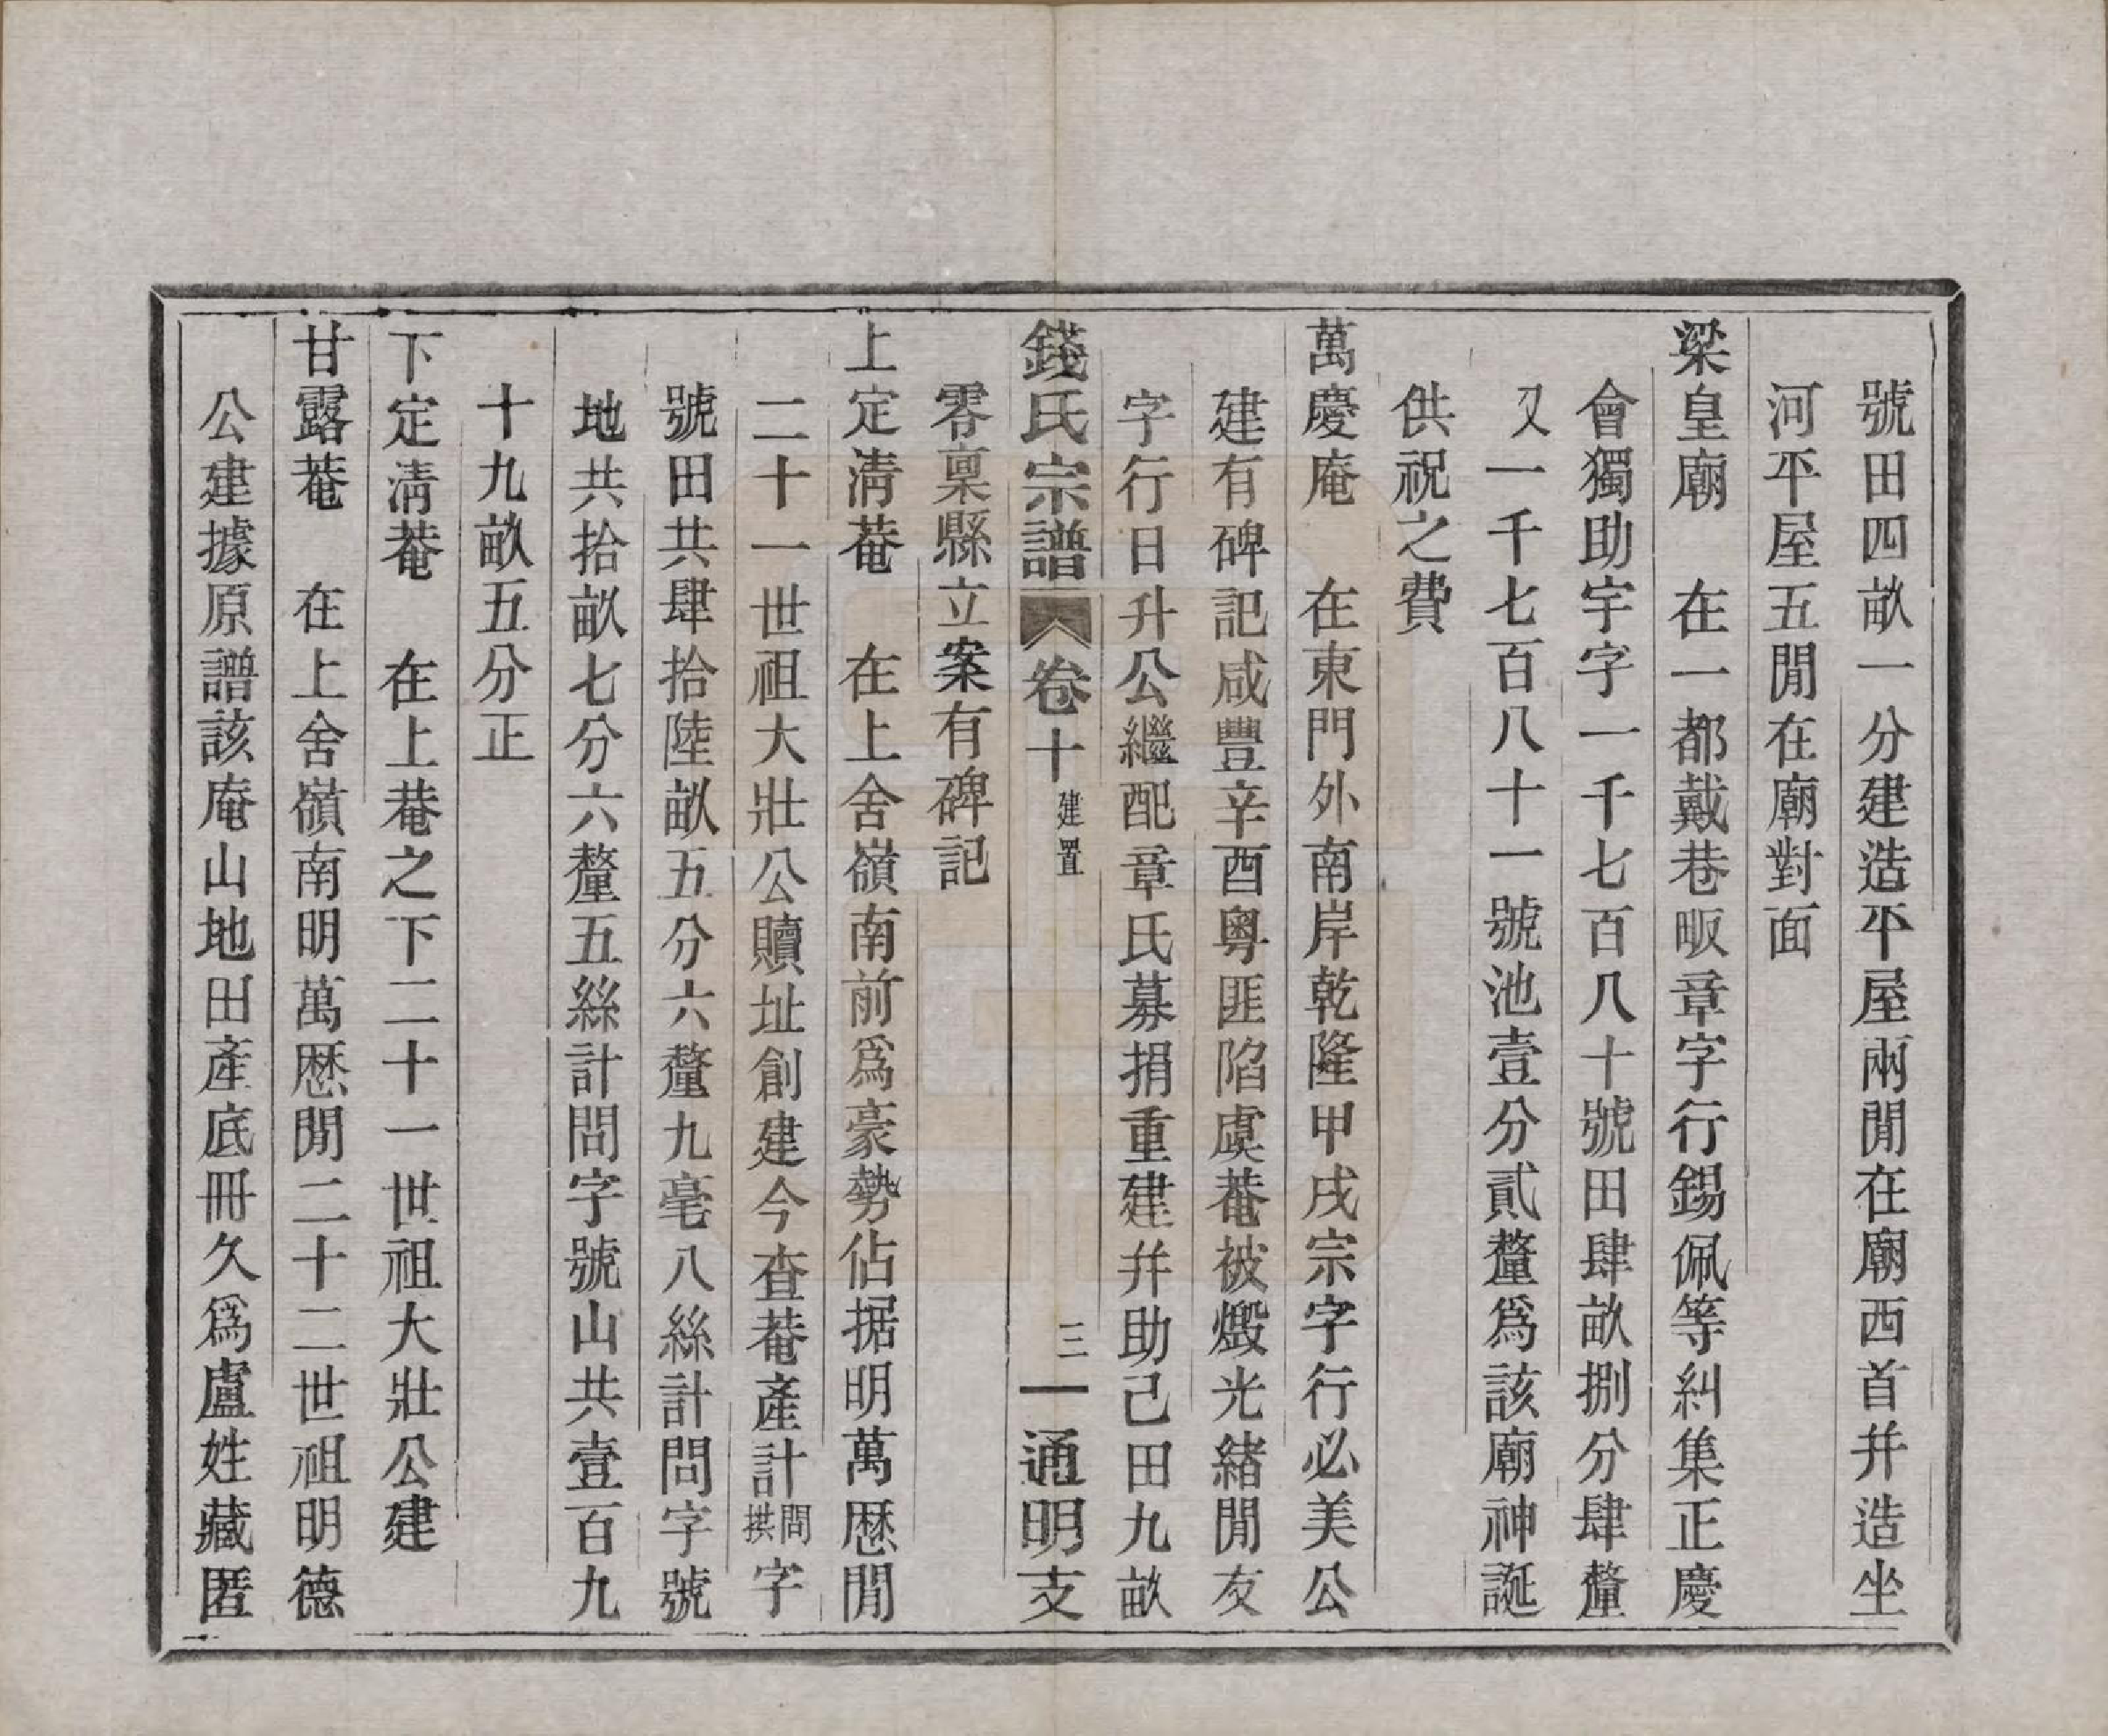 號田四畝一分建造平屋兩閒在廟西首幷造坐
河平屋五閒在廟對面
梁皇廟　在一都戴巷畈章字行錫佩等糾集正慶
會獨助宇字一千七百八十號田肆畝捌分肆釐
又一千七百八十一號池壹分貳釐爲該廟神誕
供祝之費
萬慶庵　在東門外南岸乾隆甲戌宗字行必美公
建有碑記咸豐辛酉粵匪陷虞菴被燬光緖閒友
字行日升公繼配章氏募捐重建幷助己田九畝
錢氏宗譜　卷十　建置　三　通明支
零稟縣立案有碑記
上定淸菴　在上舍嶺南前爲豪勢佔据明萬歷閒
二十一世祖大壯公贖址創建今查菴產計問拱字
號田共肆拾陸畝五分六釐九毫八絲計問字號
地共拾畝七分六釐五絲計問字號山共壹百九
十九畝五分正
下定淸菴　在上巷之下二十一世祖大壯公建
甘露菴　在上舍嶺南明萬歷閒二十二世祖明德
公建據原譜該庵山地田產底冊久爲盧姓藏匿